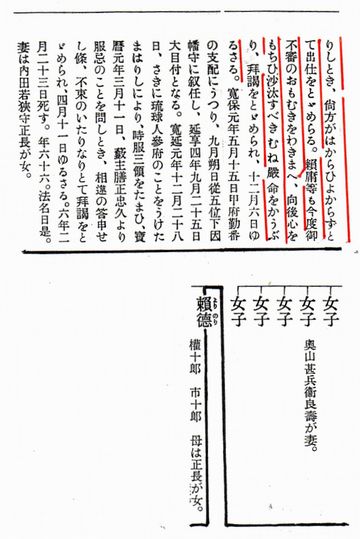 りしとき、尙方がはからひよからずと
て出仕をとゞめらる。賴庸等も今度御
不審のおもむきをわきまへ、向後心を
もちひ沙汰すべきむね嚴命をかうぶ
り、拜謁をとゞめられ、十二月六日ゆ
るさる。寬保元年五月十五日甲府勤番
の支配にうつり、九月朔日從五位下因
幡守に叙任し、延享四年九月二十五日
大目付となる。寬延元年十二月二十八
日、さきに琉球人參府のことをうけた
まはりしにより、時服三領をたまひ、寶
曆元年三月十一日、藪主膳正忠久より
服忌のことを問しとき、相違の答申せ
し條、不束のいたりなりとて拜謁をと
ゞめられ、四月十一日ゆるさる。六年二
月二十三日死す。年六十六。法名日是。
妻は內田若狹守正長が女。
女子
女子
奧山甚兵衞良壽が妻。
女子
女子
女子
賴德 よりのり
權十郎 市十郎 母は正長が女。